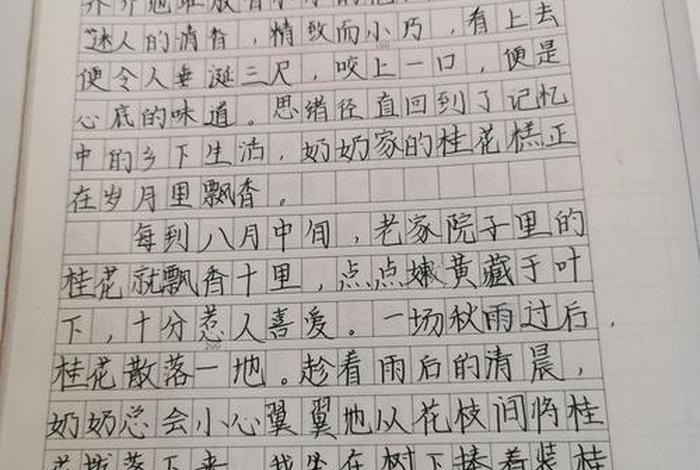 迷人的清香，精致而小巧，看上去
便令人垂涎三尺，咬上一口，便是
心底的味道。思绪径直回到了记忆
中的乡下生活，奶奶家的桂花糕正
在岁月里飘香。
每到八月中旬，老家院子里的
桂花就飘香十里，点点嫩黄藏于叶
下，十分惹人喜爱。一场秋雨过后，
200
桂花散落一地。趁着雨后的清晨，
奶奶总会小心翼翼地从花枝间将桂
落下来，我坐在树下捧着装桂